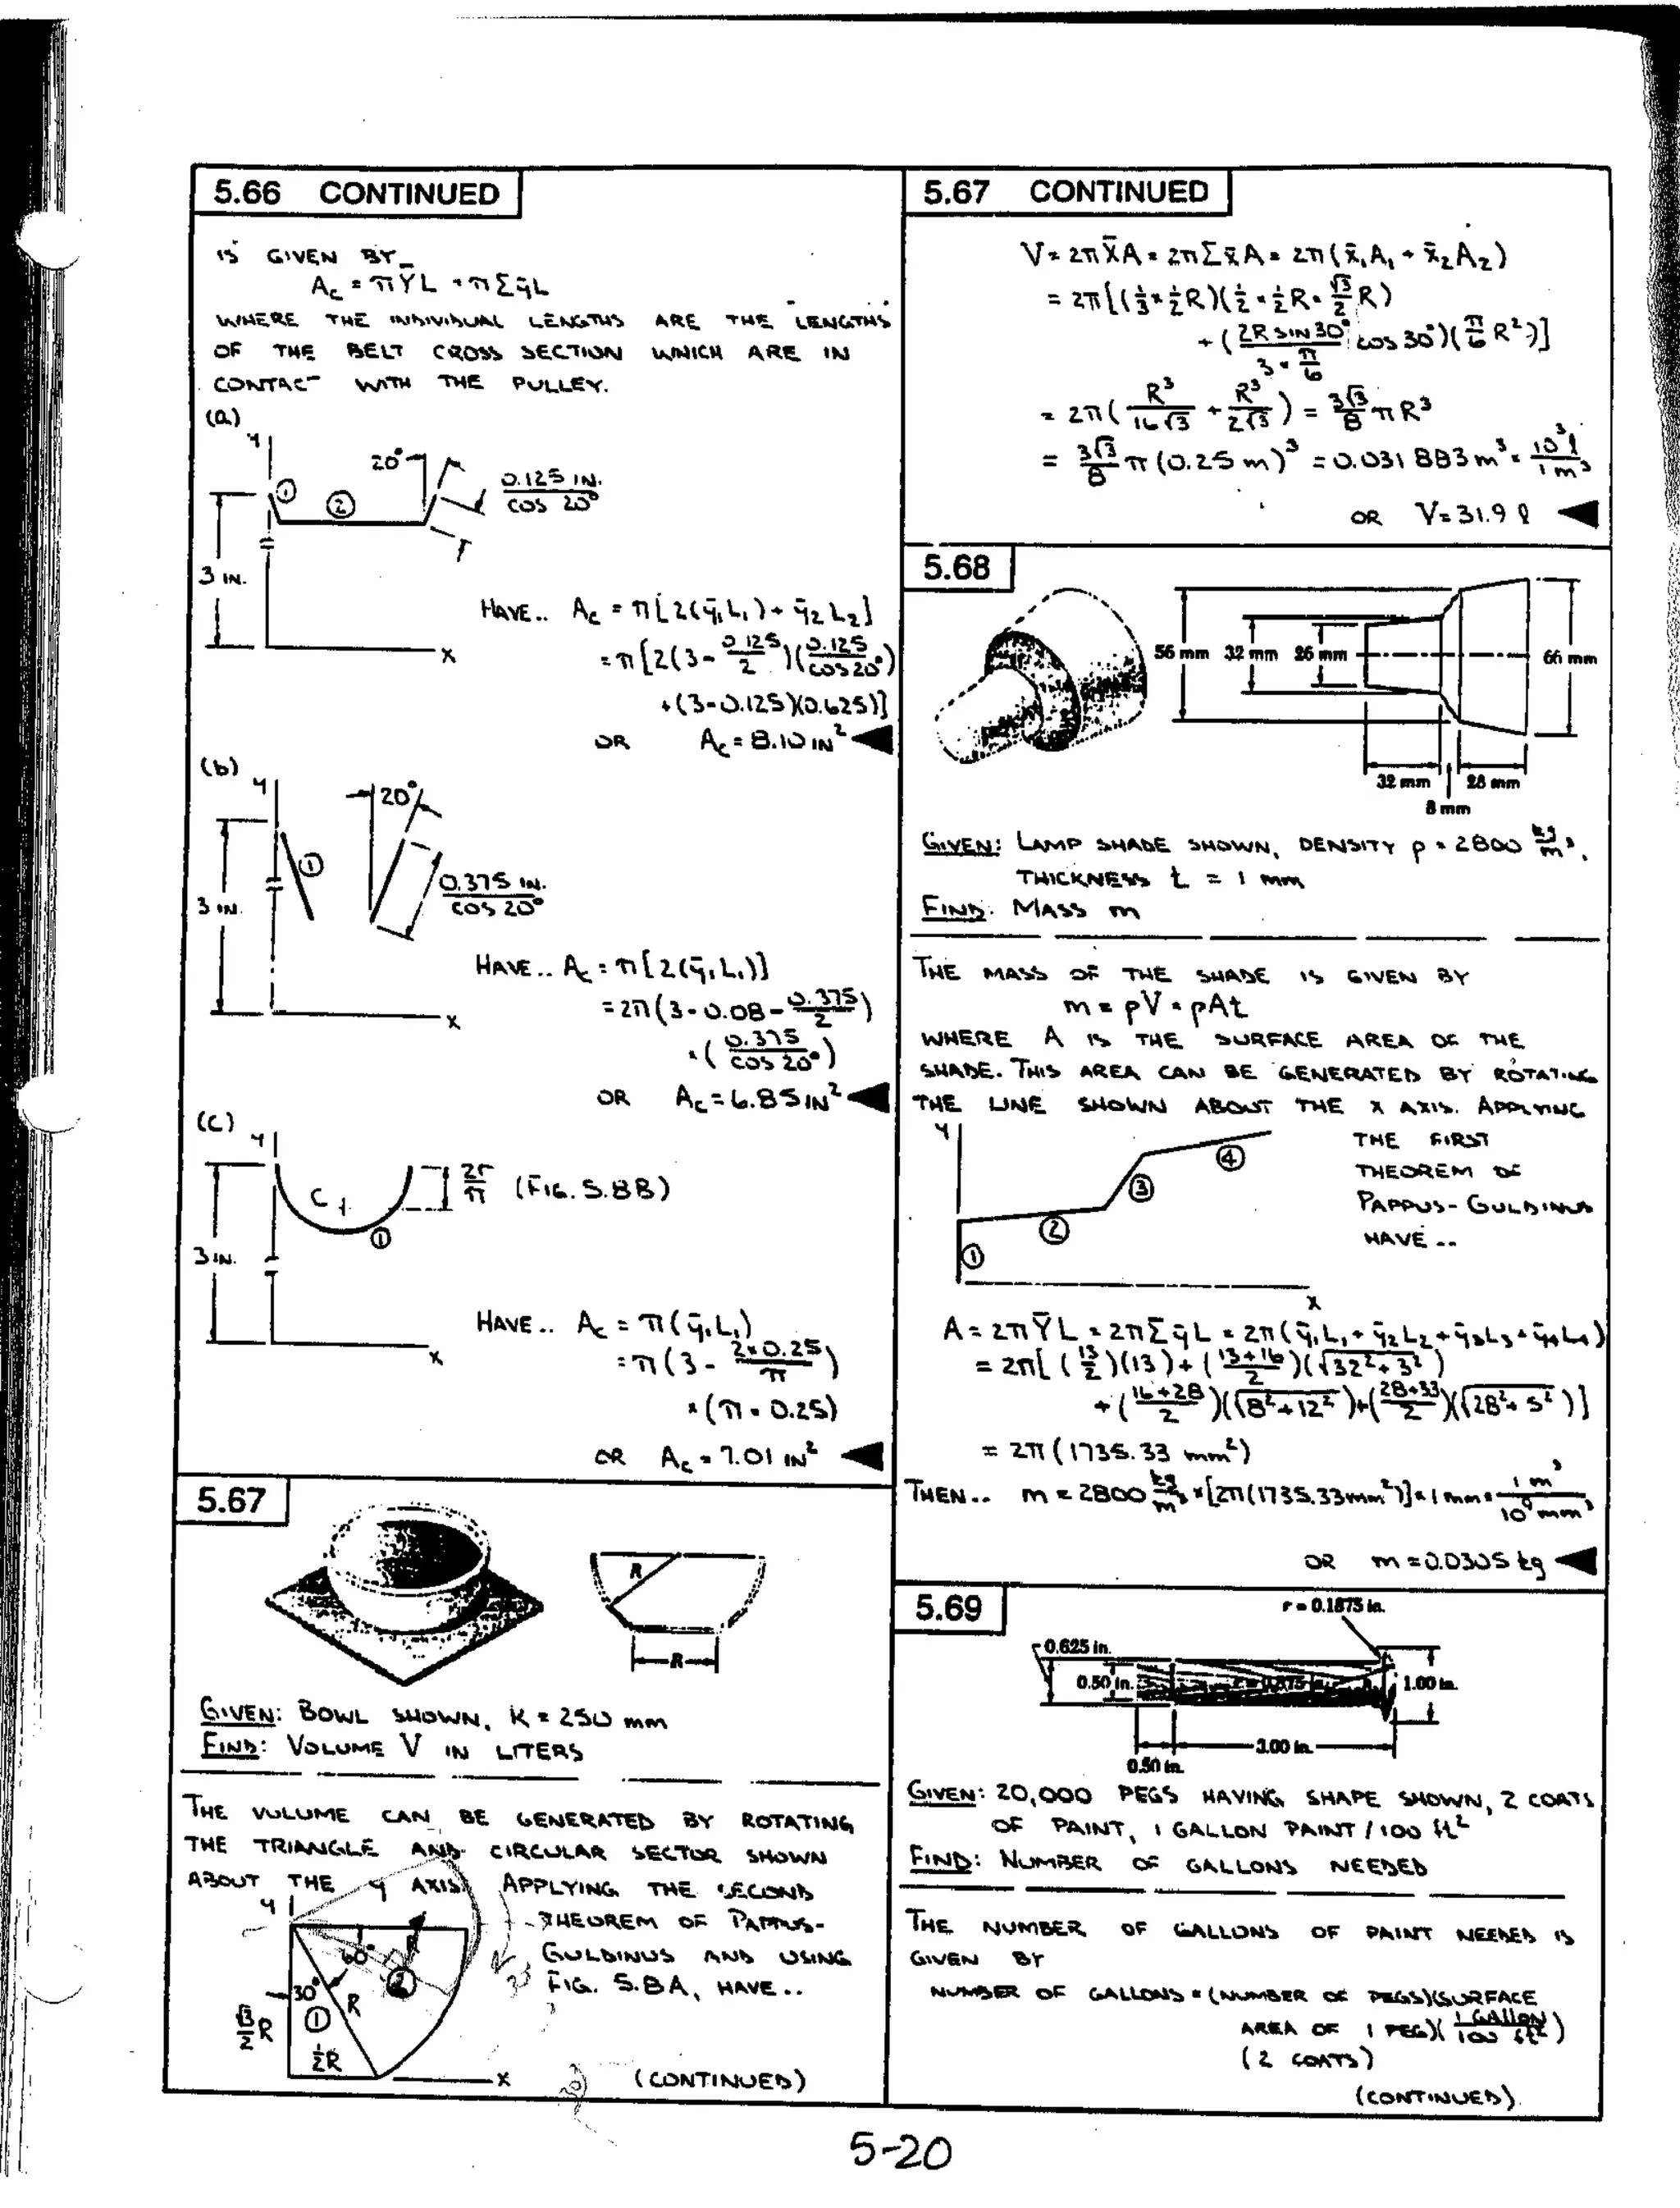 5.66 CONTINUED
IS GIVEN BY
A_C = πȲL = πΣȳL
WHERE THE INDIVIDUAL LENGTHS ARE THE LENGTHS
OF THE BELT CROSS SECTION WHICH ARE IN
CONTACT WITH THE PULLEY.
(a)
y
20°
① ②
0.125 IN.
COS 20°
3 IN.
x
HAVE.. A_C = π[2(ȳ₁L₁) + ȳ₂L₂]
= π[2(3 - 0.125/2)(0.125/COS 20°)
+ (3-0.125)(0.625)]
OR A_C = 8.10 IN²
(b)
y
20°
①
0.375 IN.
COS 20°
3 IN.
x
HAVE.. A_C = π[2(ȳ₁L₁)]
= 2π(3 - 0.08 - 0.375/2)
×(0.375/COS 20°)
OR A_C = 6.85 IN²
(c)
y
2r/π (FIG. 5.8B)
C
①
3 IN.
x
HAVE.. A_C = π(ȳ₁L₁)
= π(3 - 2×0.25/π)
×(π × 0.25)
OR A_C = 7.01 IN²
5.67
R
R
GIVEN: BOWL SHOWN, R = 250 mm
FIND: VOLUME V IN LITERS
THE VOLUME CAN BE GENERATED BY ROTATING
THE TRIANGLE AND CIRCULAR SECTOR SHOWN
ABOUT THE y AXIS. APPLYING THE SECOND
THEOREM OF PAPPUS-
GULDINUS AND USING
FIG. 5.8A, HAVE...
y
60°
R
30°
②
R
√3/2 R
①
½R
x
(CONTINUED)
5.67 CONTINUED
V = 2πX̄A = 2πΣx̄A = 2π(x̄₁A₁ + x̄₂A₂)
= 2π[(⅓×½R)(½×½R×√3/2 R)
+ (2R SIN 30°/(3×π/6) COS 30°)(π/6 R²)]
= 2π(R³/16√3 + R³/2√3) = 3√3/8 πR³
= 3√3/8 π(0.25 m)³ = 0.031 883 m³ × 10³ l/1 m³
OR V = 31.9 l
5.68
56 mm 32 mm 26 mm 66 mm
32 mm 28 mm
8 mm
GIVEN: LAMP SHADE SHOWN, DENSITY ρ = 2800 kg/m³,
THICKNESS t = 1 mm
FIND: MASS m
THE MASS OF THE SHADE IS GIVEN BY
m = ρV = ρAt
WHERE A IS THE SURFACE AREA OF THE
SHADE. THIS AREA CAN BE GENERATED BY ROTATING
THE LINE SHOWN ABOUT THE X AXIS. APPLYING
THE FIRST
THEOREM OF
PAPPUS-GULDINUS
HAVE ..
y
④
③
②
①
x
A = 2πȲL = 2πΣȳL = 2π(ȳ₁L₁ + ȳ₂L₂ + ȳ₃L₃ + ȳ₄L₄)
= 2π[(13/2)(13) + (13+16/2)(√32²+3²)
+ (16+28/2)(√8²+12²) + (28+33/2)(√28²+5²)]
= 2π(1735.33 mm²)
THEN.. m = 2800 kg/m³ × [2π(1735.33 mm²)] × 1 mm × 1 m³/10⁹ mm³
OR m = 0.0305 kg
5.69
r = 0.1875 in.
0.625 in.
0.50 in.
1.00 in.
3.00 in.
0.50 in.
GIVEN: 20,000 PEGS HAVING SHAPE SHOWN, 2 COATS
OF PAINT, 1 GALLON PAINT / 100 ft²
FIND: NUMBER OF GALLONS NEEDED
THE NUMBER OF GALLONS OF PAINT NEEDED IS
GIVEN BY
NUMBER OF GALLONS = (NUMBER OF PEGS)(SURFACE
AREA OF 1 PEG)(1 Gallon/100 ft²)
(2 COATS)
(CONTINUED)
5-20